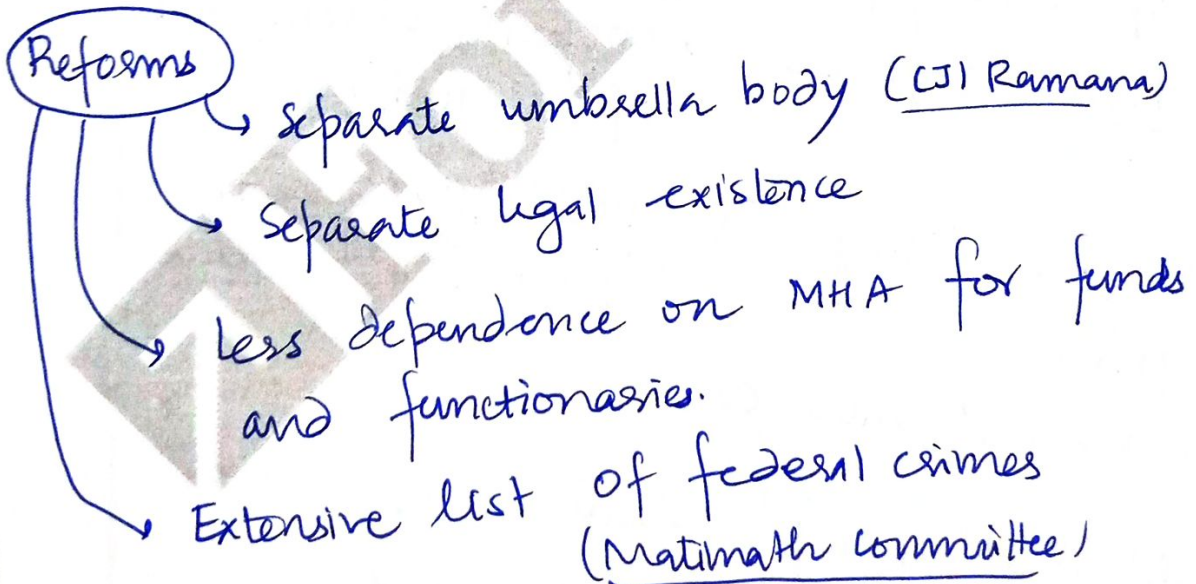 Reforms
Separate umbrella body (CJI Ramana)
Separate legal existence
Less dependence on MHA for funds
and functionaries.
Extensive list of federal crimes
(Matimath committee)